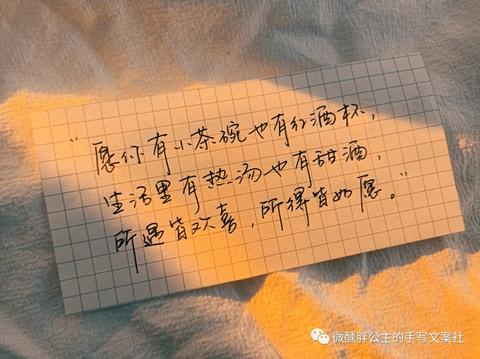 “愿你有小茶碗也有红酒杯，
生活里有热汤也有甜酒，
所遇皆欢喜，所得皆如愿。”
微醺胖公主的手写文案社